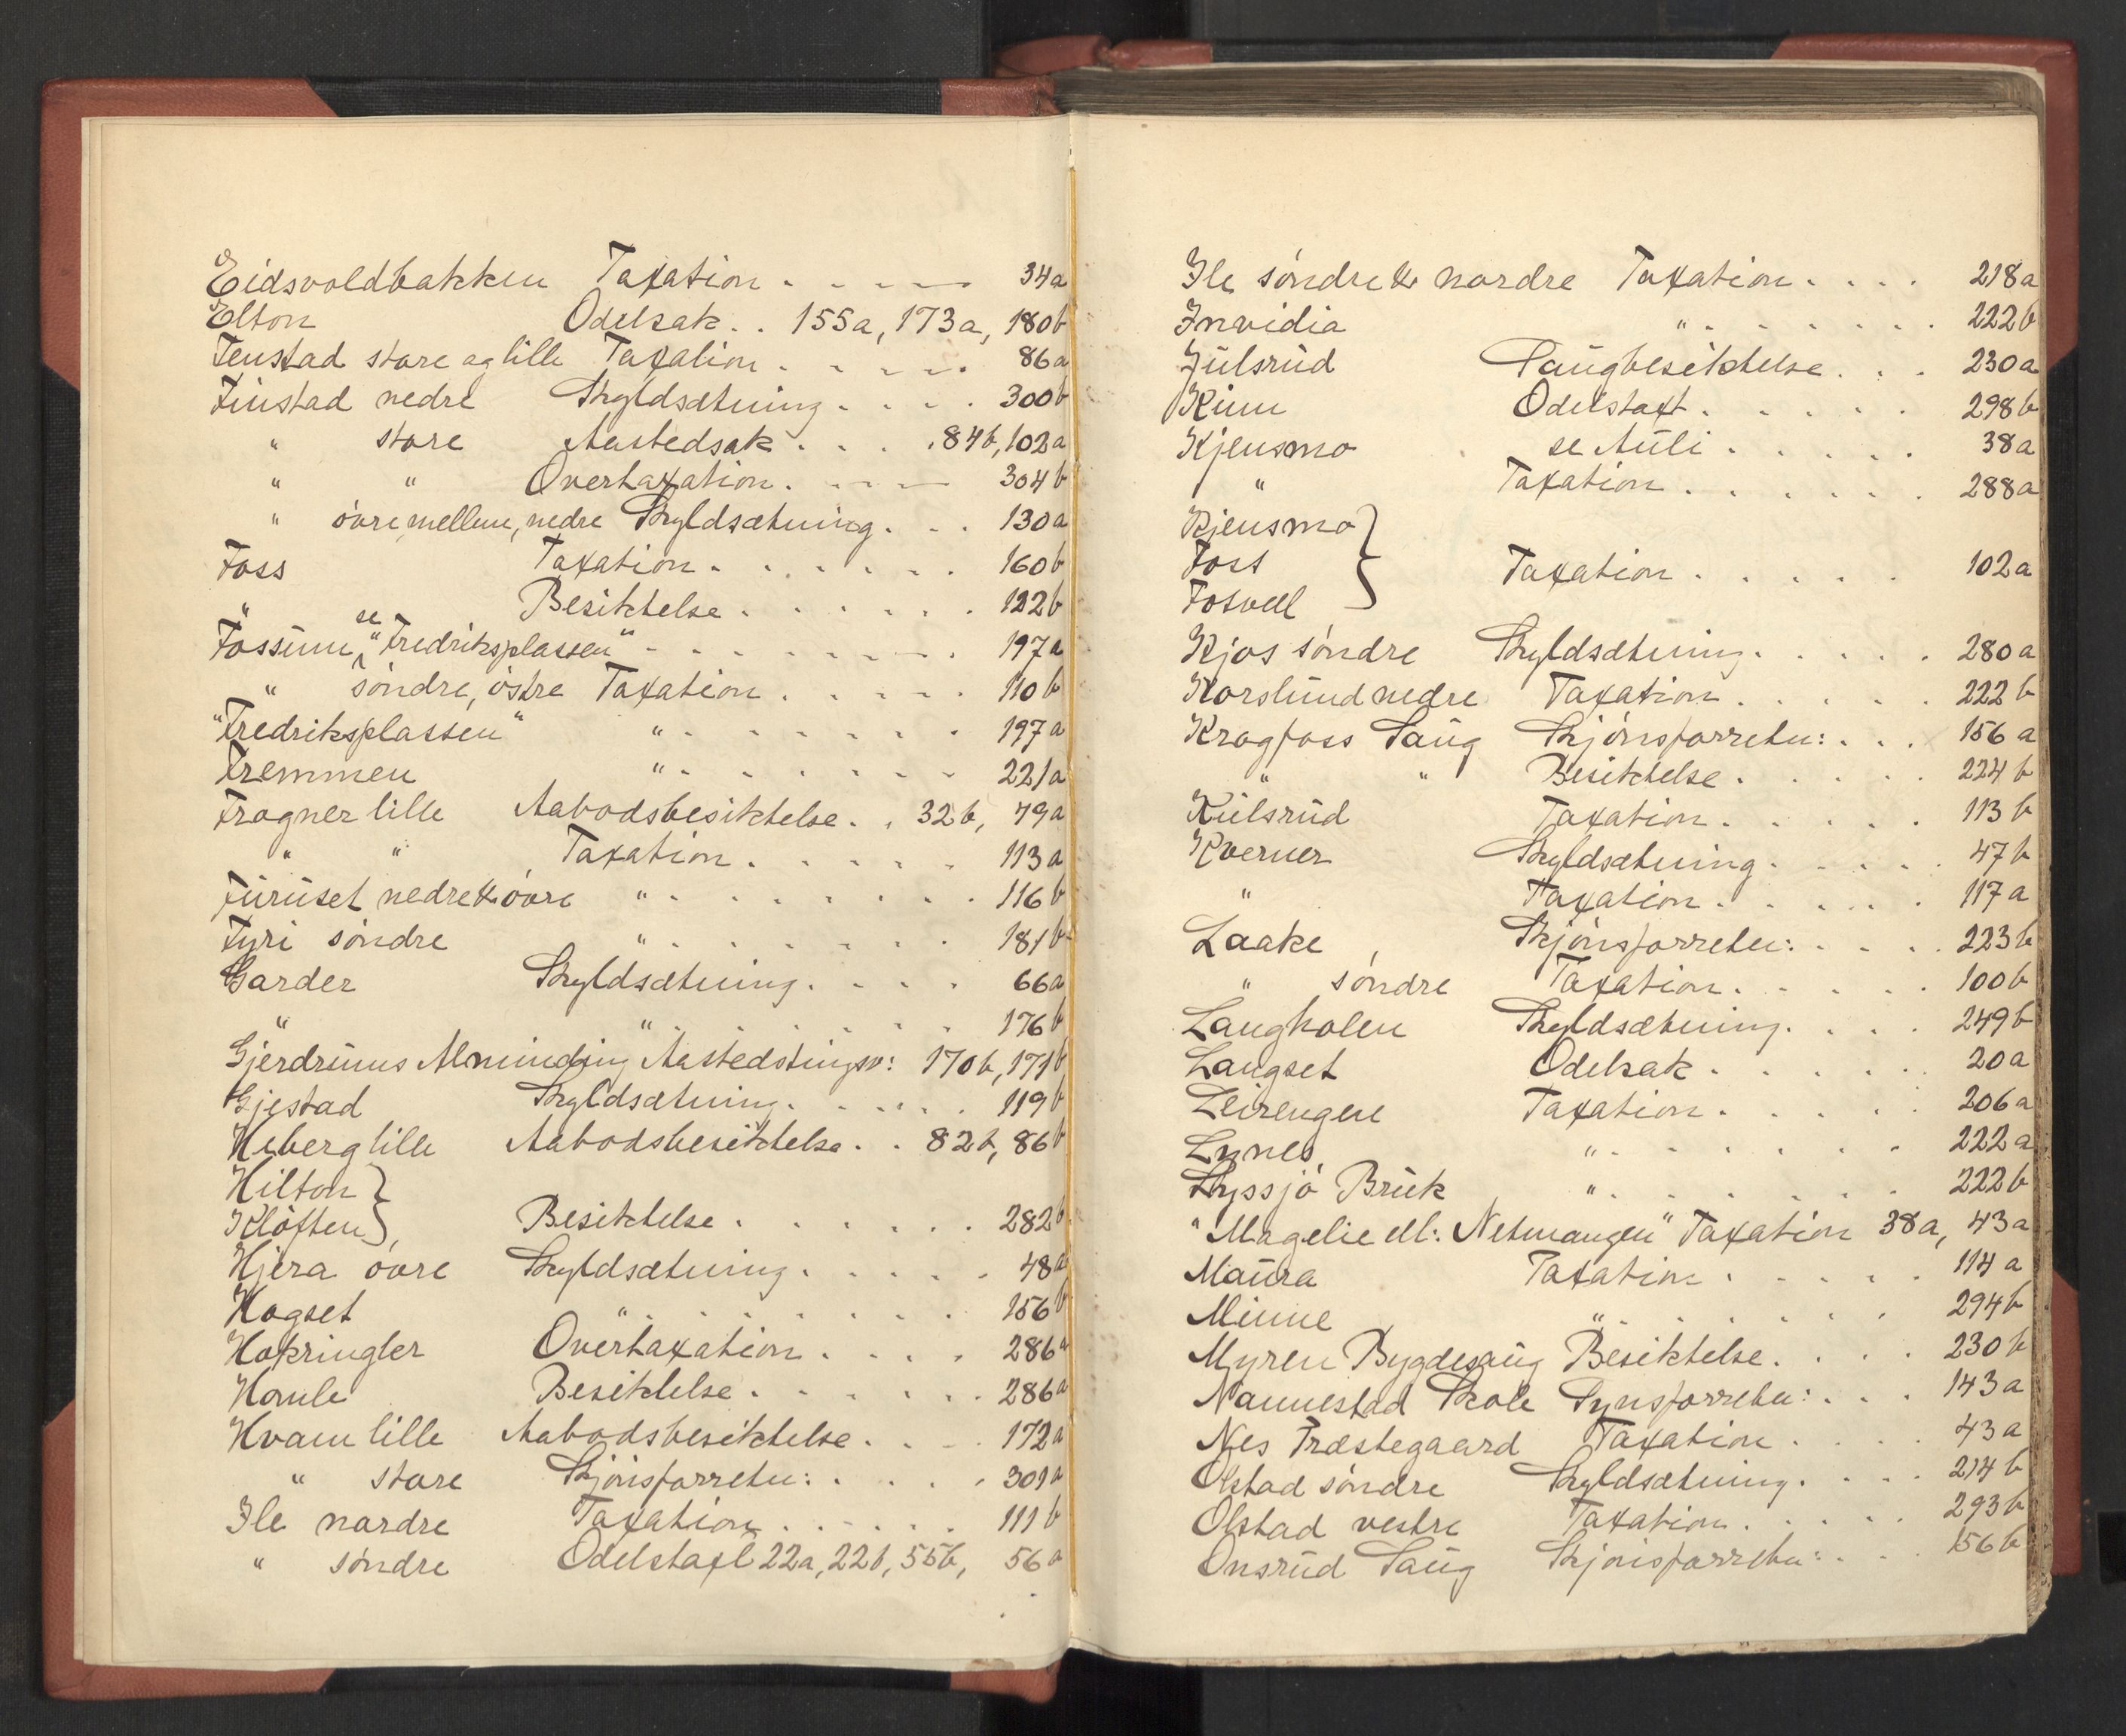 Eidsvoldbakken Taxation . . . . . 34a
Elton Odelsak . . 155a, 173a, 180b
Fenstad store og lille Taxation . . . . . 86a
Finstad nedre Skyldsætning . . . . 300b
" store Aastedsak . . . . 84b, 102a
" " Overtaxation . . . . 304b
" övre, mellem, nedre Skyldsætning . . . 130a
Foss Taxation . . . . . . 160b
" Besiktelse . . . . . . 122b
Fossum, se "Fredriksplassen" . . . . . . . . 197a
" söndre, östre Taxation . . . . . 110b
"Fredriksplassen" " . . . . . . . 197a
Fremmen " . . . . . . . 221a
Frogner lille Aabodsbesiktelse . . 32b, 79a
" " Taxation . . . . . . 113a
Furuset nedre & övre " . . . . . . . . 116b
Fyri söndre " . . . . . . . 181b
Garder Skyldsætning . . . . 66a
" " . . . . . . . 176b
Gjerdrums Alminding Aastedstingsv: 170b, 171b
Gjestad Skyldsætning . . . . . 119b
Heberg lille Aabodsbesiktelse . . 82b, 86b
Hilton }
Klöften } Besiktelse . . . . . . 282b
Hjera övre Skyldsætning . . . . . 48a
Hogset " . . . . . . . 156b
Hokringler Overtaxation . . . . 286a
Homle Besiktelse . . . . . . 286a
Hvam lille Aabodsbesiktelse . . . . 172a
" store Skjönsforretn: . . . . . 301a
Ile nordre Taxation . . . . . . 111b
" söndre Odelstaxt 22a, 22b, 55b, 56a
Ile söndre & nordre Taxation . . . . 218a
Invidia " . . . . . . . 222b
Julsrud Saugbesiktelse . . . 230a
Kinn Odelstaxt . . . . . . 298b
Kjensmo se Auli . . . . . 38a
" Taxation . . . . . . 288a
Kjensmo }
Foss } Taxation . . . . . 102a
Fosvell }
Kjos söndre Skyldsætning . . . . . 280a
Korslund nedre Taxation . . . . . 222b
Krogfoss Saug Skjönsforretn: . . . 156a
" " Besiktelse . . . . . 224b
Kulsrud Taxation . . . . . 113b
Kverner Skyldsætning . . . . . 47b
" Taxation . . . . . . 117a
Laake Skjönsforretn: . . . . 223b
" söndre Taxation . . . . . 100b
Langholen Skyldsætning . . . . 249b
Langset Odelsak . . . . . . 20a
Leirengen Taxation . . . . . 206a
Lynes " . . . . . . 222a
Lyssjö Bruk " . . . . . . 222b
"Magelie ell: Netmangen" Taxation 38a, 43a
Maura Taxation . . . . . 114a
Minne " . . . . . . 294b
Myren Bygdesaug Besiktelse . . . . 230b
Nannestad Skole Synsforretn: . . . 143a
Nes Præstegaard Taxation . . . . 43a
Olstad söndre Skyldsætning . . . . 214b
Olstad vestre Taxation . . . . . 293b
Onsrud Saug Skjönsforretn: . . . 156b